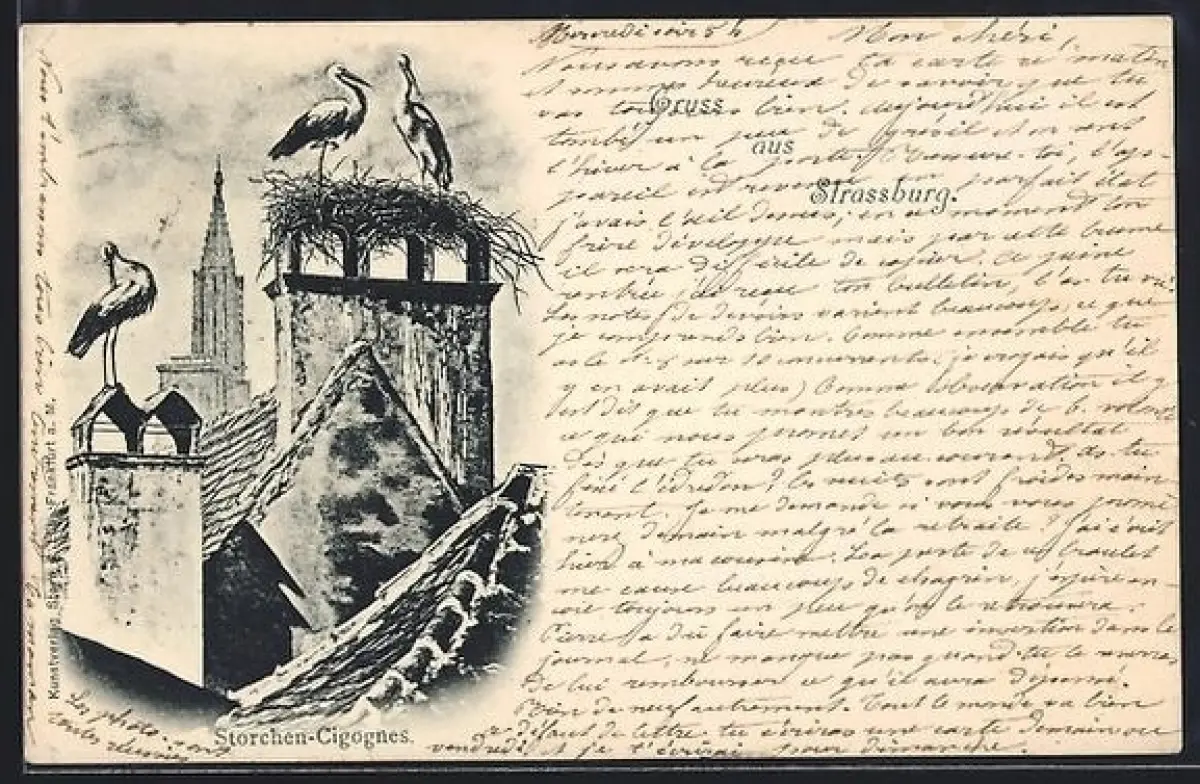 Mercredi soir 5h Mon chéri,
Nous avons reçu ta carte ce matin
et sommes heureux de savoir que tu
vas toujours bien. Aujourd'hui il est
tombé un peu de grésil et on sent
l'hiver à la porte. Rassure-toi, l'ap-
pareil est revenu en parfait état
j'avais l'œil dessus, en ce moment ton
frère développe mais par cette brume
il sera difficile de copier. Ce
rentrée j'ai reçu ton bulletin, l'as tu vu?
Les notes de devoirs varient beaucoup, ce que
je comprends bien. Comme ensemble tu
as le sur 10 concurrents. je croyais qu'il
y en avait plus) Comme observation il y
est dit que tu montres beaucoup de b. volonté
ce qui nous promet un bon résultat
dès que tu seras plus au courant. As-tu
fini l'édredon? Les nuits sont froides main-
tenant. Je me demande si vous vous promè-
nerez demain malgré la retraite? J'ai écrit
hier à ma cousine. La perte de ce bracelet
me cause beaucoup de chagrin, j'espère en-
core toujours un peu qu'on le retrouvera.
Pierre a dû faire mettre une insertion dans le
journal, ne manque pas quand tu le verras
de lui rembourser ce qu'il aura déposé.
Rien de neuf autrement. Tout le monde va bien
à défaut de lettre, tu écriras une carte demain ou
vendredi et je t'écrirai pour dimanche.
Gruss
aus
Strassburg.
Storchen-Cigognes.
Kunstverlag Frankfurt a. M.
Nous t'embrassons tous bien
Les photos sont
toutes réussies